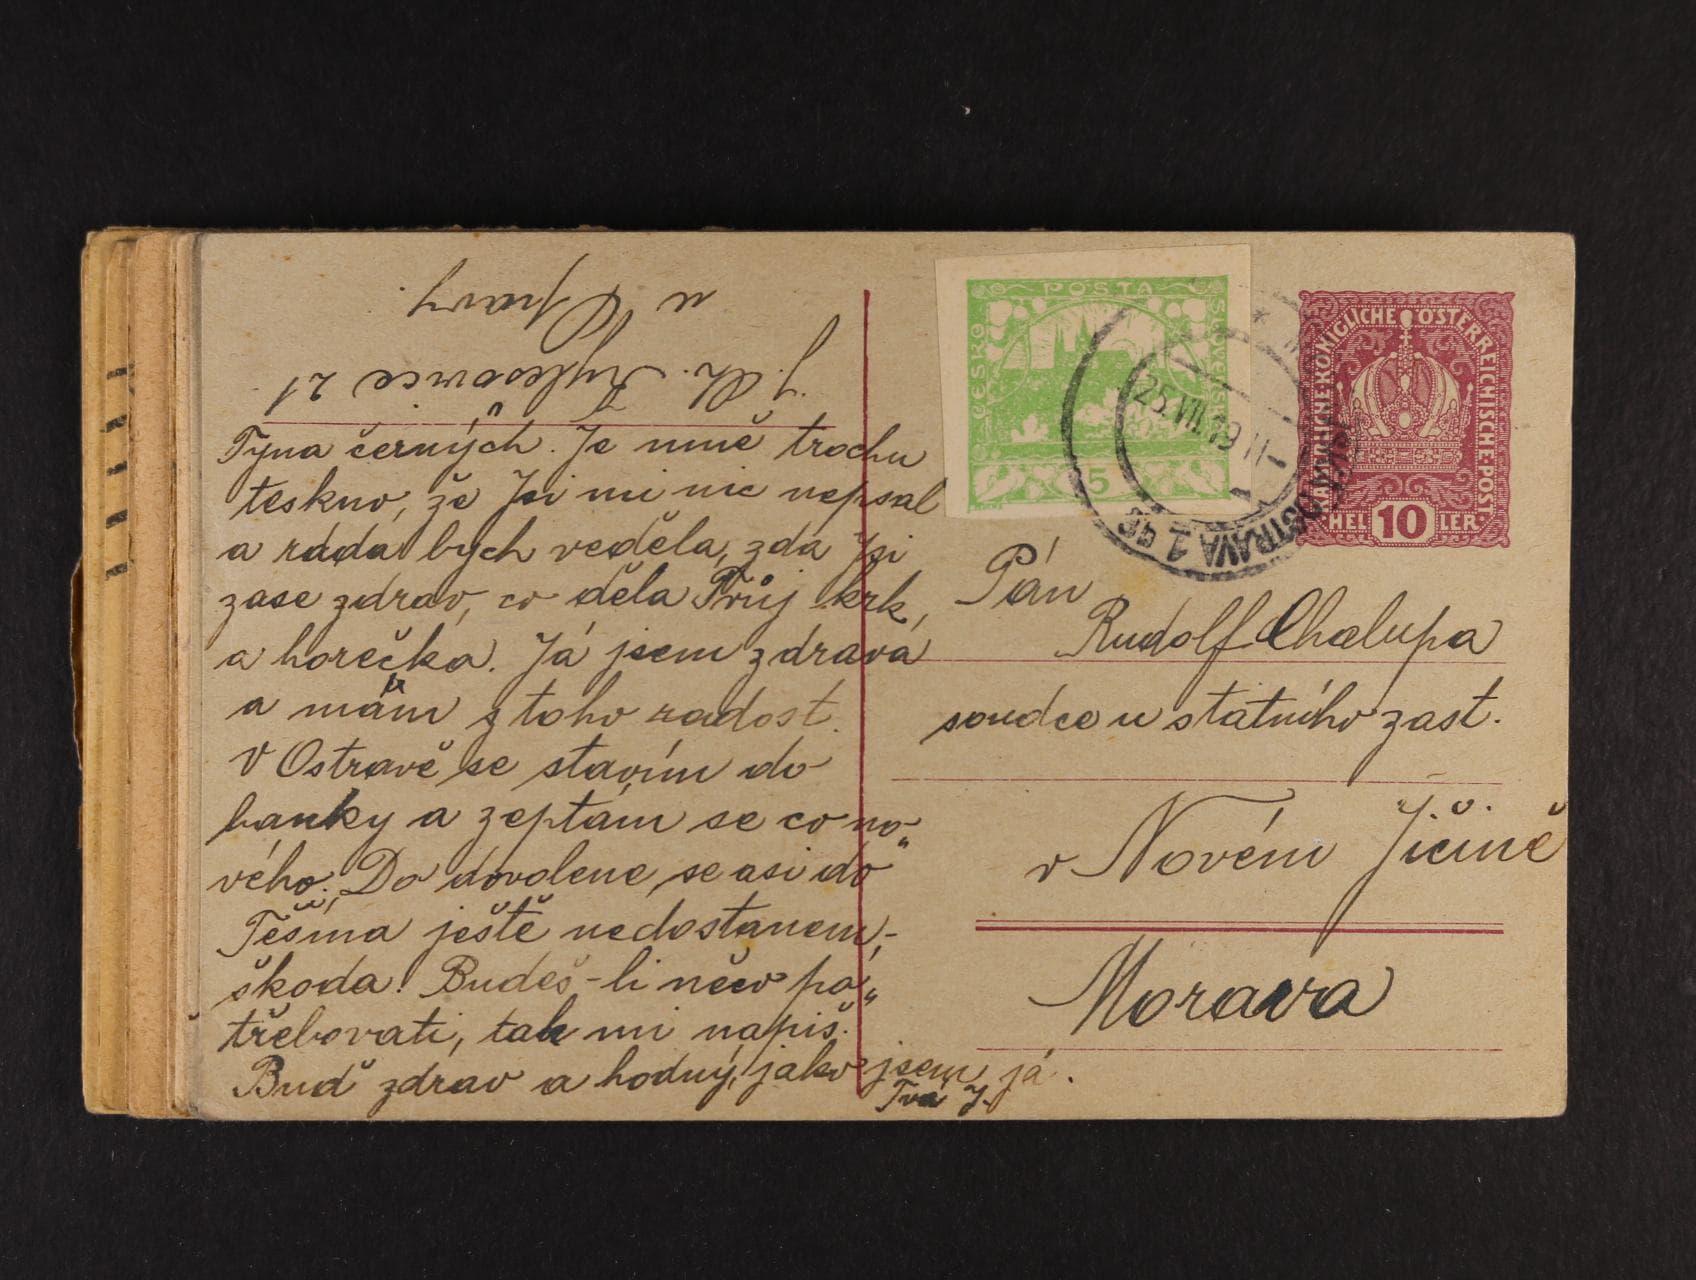 u Opavy.
J. Ch. Kylešovice 21
Týna černých. Je mně trochu
teskno, že Jsi mi nic nepsal
a ráda bych veděla, zda Jsi
zase zdráv, co děla Tvůj krk,
a horečka. Já jsem zdravá
a mám z toho radost.
V Ostravě se stavím do
banky a zeptám se co no„
vého. Do dovolene se asi do
Těšína ještě nedostanem,-
škoda! Budeš-li něco po„
třebovati, tak mi napiš.
Buď zdráv a hodný, jako jsem já.
Tvá J.
POSTA
ČESKO
SLOVENSKÁ
5
KAISERLICHE KÖNIGLICHE ÖSTERREICHISCHE POST
HELLER
10
25.VII.19 11-
OSTRAVA 1
Pán
Rudolf Chalupa
soudce u státního zast.
v Novém Jičíně
Morava